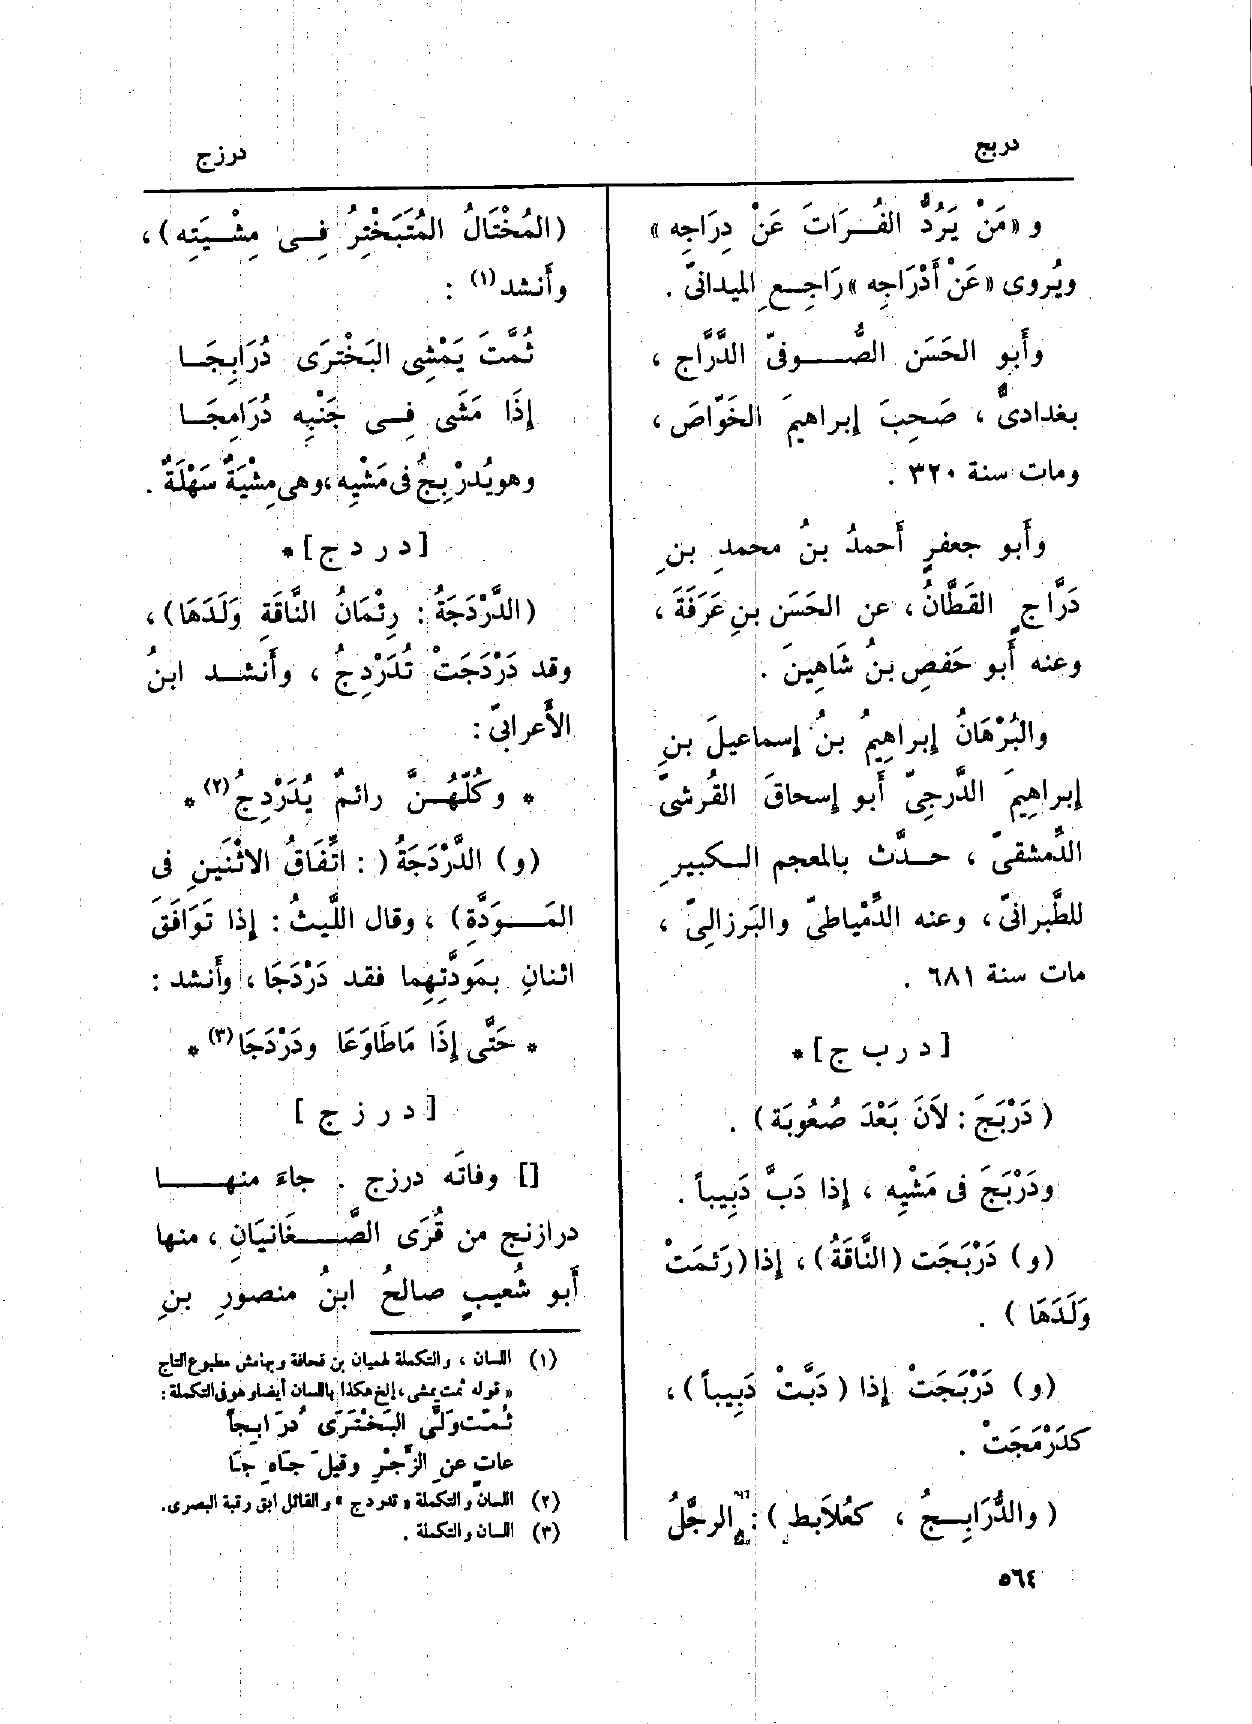 دربج
درزج
و «مَنْ يَرُدُّ الفُـرَاتَ عَنْ دِرَاجِه»
ويُروى «عَنْ أَدْرَاجِه» رَاجِـعِ الميدانىّ .
وأَبو الحَسَن الصُّـوفىّ الدَّرَّاج ،
بغدادىٌّ ، صَحِبَ إِبراهيمَ الخَوّاصَ ،
ومات سنة ٣٢٠ .
وأَبو جعفرٍ أَحمدُ بنُ محمدِ بنِ
دَرَّاجٍ القَطَّانُ ، عن الحَسَن بنِ عَرَفَةَ ،
وعنه أَبو حَفصِ بنُ شَاهِينَ .
والبُرْهَانُ إِبراهِيمُ بنُ إِسماعيلَ بنِ
إِبراهِيمَ الدَّرجِىّ أَبو إِسحاقَ القُرشىّ
الدِّمشقىّ ، حـدَّث بالمعجم الـكبيرِ
للطَّبرانىّ ، وعنه الدِّمْياطىّ والبَرزالِىّ ،
مات سنة ٦٨١ .
[ د ر ب ج ] *
( دَرْبَجَ : لاَنَ بَعْدَ صُعُوبَة ) .
ودَرْبَجَ فى مَشْيِه ، إِذا دَبَّ دَبِيباً .
(و) دَرْبَجَت (النَّاقَةُ) ، إِذا (رَئمَتْ
وَلَدَهَا ) .
(و) دَرْبَجَتْ إِذا ( دَبَّتْ دَبِيباً ) ،
كدَرْمَجَتْ .
( والدُّرَابِـجُ ، كعُلاَبط ) : الرجُلُ
(المُخْتَالُ المُتَبَخْتِرُ فِـى مِشْـيَتِه) ،
وأَنشد(١) :
ثُمَّتَ يَمْشِى البَخْتَرَى دُرَابِجَـا
إِذَا مَشَى فِـى جَنْبِه دُرَامِجَـا
وهو يُدرْبِجُ فى مَشْيِه ، وهى مِشْيَةٌ سَهْلَةٌ .
[ د ر د ج ] *
(الدَّرْدَجَةُ : رِئْمَانُ النَّاقَةِ وَلَدَهَا) ،
وقد دَرْدَجَتْ تُدَرْدِجُ ، وأَنشـد ابنُ
الأَعرابىّ :
* وكُلّهُـنَّ رائمٌ يُدَرْدِجُ(٢) *
(و) الدَّرْدَجَةُ ( : اتِّفَاقُ الاثْنَينِ فى
المَـوَدَّةِ) ، وقال اللَّيثُ : إِذا تَوَافَقَ
اثنانِ بمَودَّتِهِما فقد دَرْدَجَا ، وأَنشد :
* حَتَّى إِذَا مَاطَاوَعَا ودَرْدَجَا(٣) *
[ د ر ز ج ]
[] وفاتَه درزج . جاءَ منهـا
درازنج من قُرَى الصَّـغَانيَانِ ، منها
أَبو شُعيبٍ صالحُ ابنُ منصورِ بنِ
(١) اللسان ، والتكملة لهميان بن قحافة وبهامش مطبوع التاج
« قوله ثمت يمشى ، إلخ هكذا باللسان أيضا وهو فى التكملة :
ثُمّتَ وَلَّى البَخْتَرَى دُرَابِجاً
عاتٍ عنِ الزَّجْرِ وقيلَ جَاهِ جَا
(٢) اللسان والتكملة « تدردج » والقائل أبق رقبة البصرى .
(٣) اللسان والتكملة .
٥٦٤